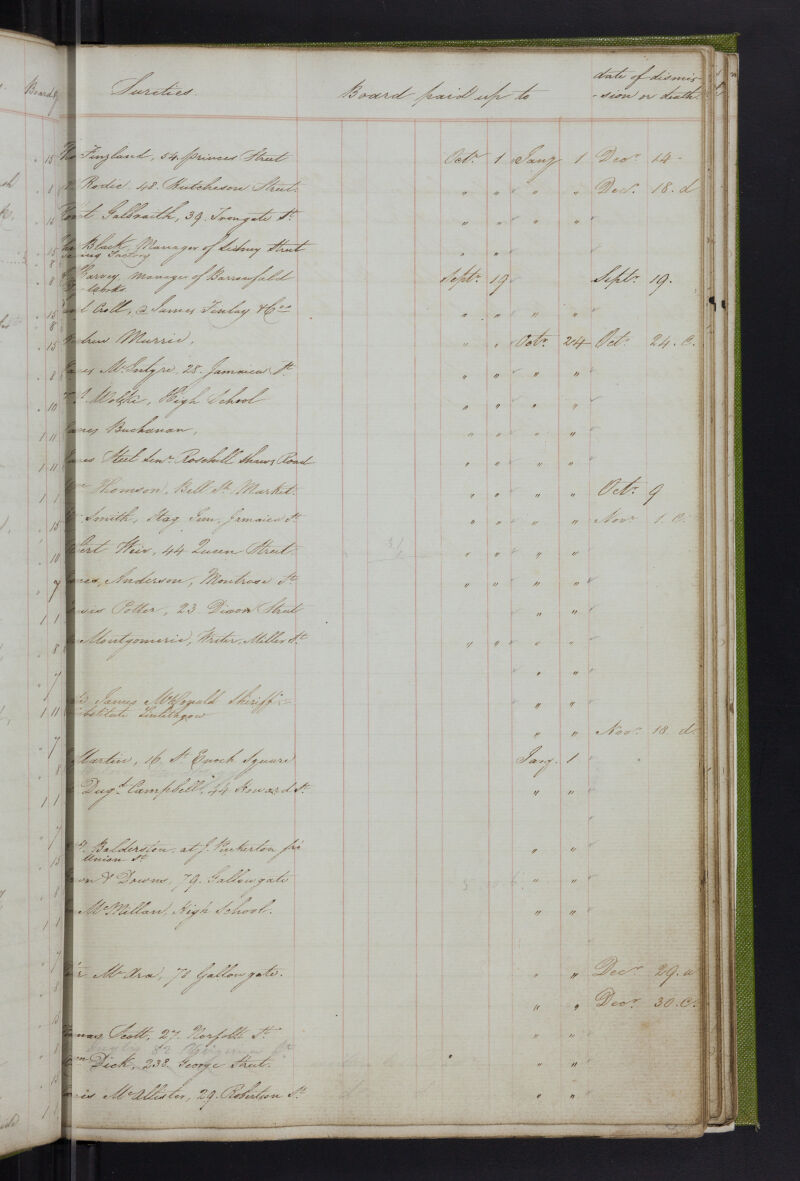 Board
Sureties
Board paid up to
date of dismis-
-sion or death
15 Fingland, 54 princes Street Octr. 1 Jany 1 Decr. 14
1 Rodie, 48. Hutcheson Street. " " " " Decr. 18. d
15 Galbraith, 39. Trongate St. " " " "
15 Black, Manager of Sidney Street " "
Factory
8 Harvey, manager of Barrowfield Septr. 19 Septr. 19.
Works
15 Croll, James Finlay & Co. " " " "
15 Andrew Murrie, " " Octr. 24 Octr. 24. C.
8 James McIntyre, 28. Jamaica St. " " " "
10 Wolski, High School " " " "
1 11 James Buchanan, " " " "
1 11 James Steel Senr. Rosehill Shaws Road " " " "
1 1 Thomson, Bell St. Market. " " " " Octr. 9
15 Smith, Stag Inn, Jamaica St. " " " " Novr. 1. C.
10 Weir, 44 Queen Street. " " " "
7 James Anderson, Montrose St. " " " "
1 1 Potter, 23 Dixon Street " "
8 Montgomerie, Writer, Miller St. " " " "
7 " "
James McDonald Sheriff
1 11 Substitute Linlithgow " "
7 " " Novr. 18. d.
8 Martin, 16. St. Enoch Square Jany. 1
1 1 Dugd. Campbell, 44 Howard St. " "
7
Balderston, at J. Pinkerton
15 Union St. " "
8 Brown & Downs, 79. Gallowgate " "
1 1 McMillan, High School. " "
7
8 McAra, 71 Gallowgate. " " Decr. 29.
" " Decr. 30. C.
Thomas Scott, 27. Norfolk St. " "
82 Virginia St.
Dick, 238. George Street. " "
1 McAllister, 29. Robertson St. " "